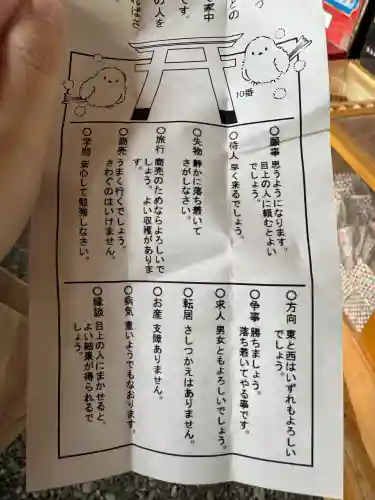 との
家中
です。
の人を
10番
○願事 思うようになります。
目上の人に頼むとよい
でしょう。
○待人 早く来るでしょう。
○失物 静かに落ち着いて
さがしなさい。
○旅行 商売のためならよろしいで
しょう。よい収穫がありま
す。
○商売 うまく行くでしょう。
さわぐのはいけません。
○学問 安心して勉強しなさい。
○方向 東と西はいずれもよろしい
でしょう。
○争事 勝ちましょう。
落ち着いてやる事です。
○求人 男女ともよろしいでしょう。
○転居 さしつかえはありません。
○お産 支障ありません。
○病気 重いようでもなおります。
○縁談 目上の人にまかせると、
よい結果が得られるで
しょう。